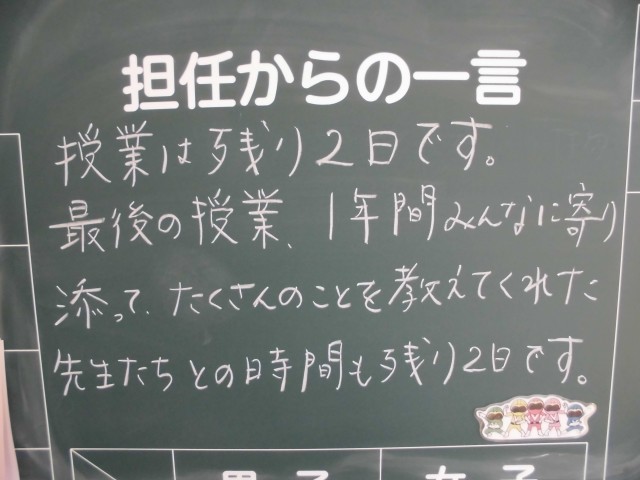 担任からの一言
授業は残り2日です。
最後の授業、1年間みんなに寄り
添って、たくさんのことを教えてくれた
先生たちとの時間も残り2日です。
男子 女子